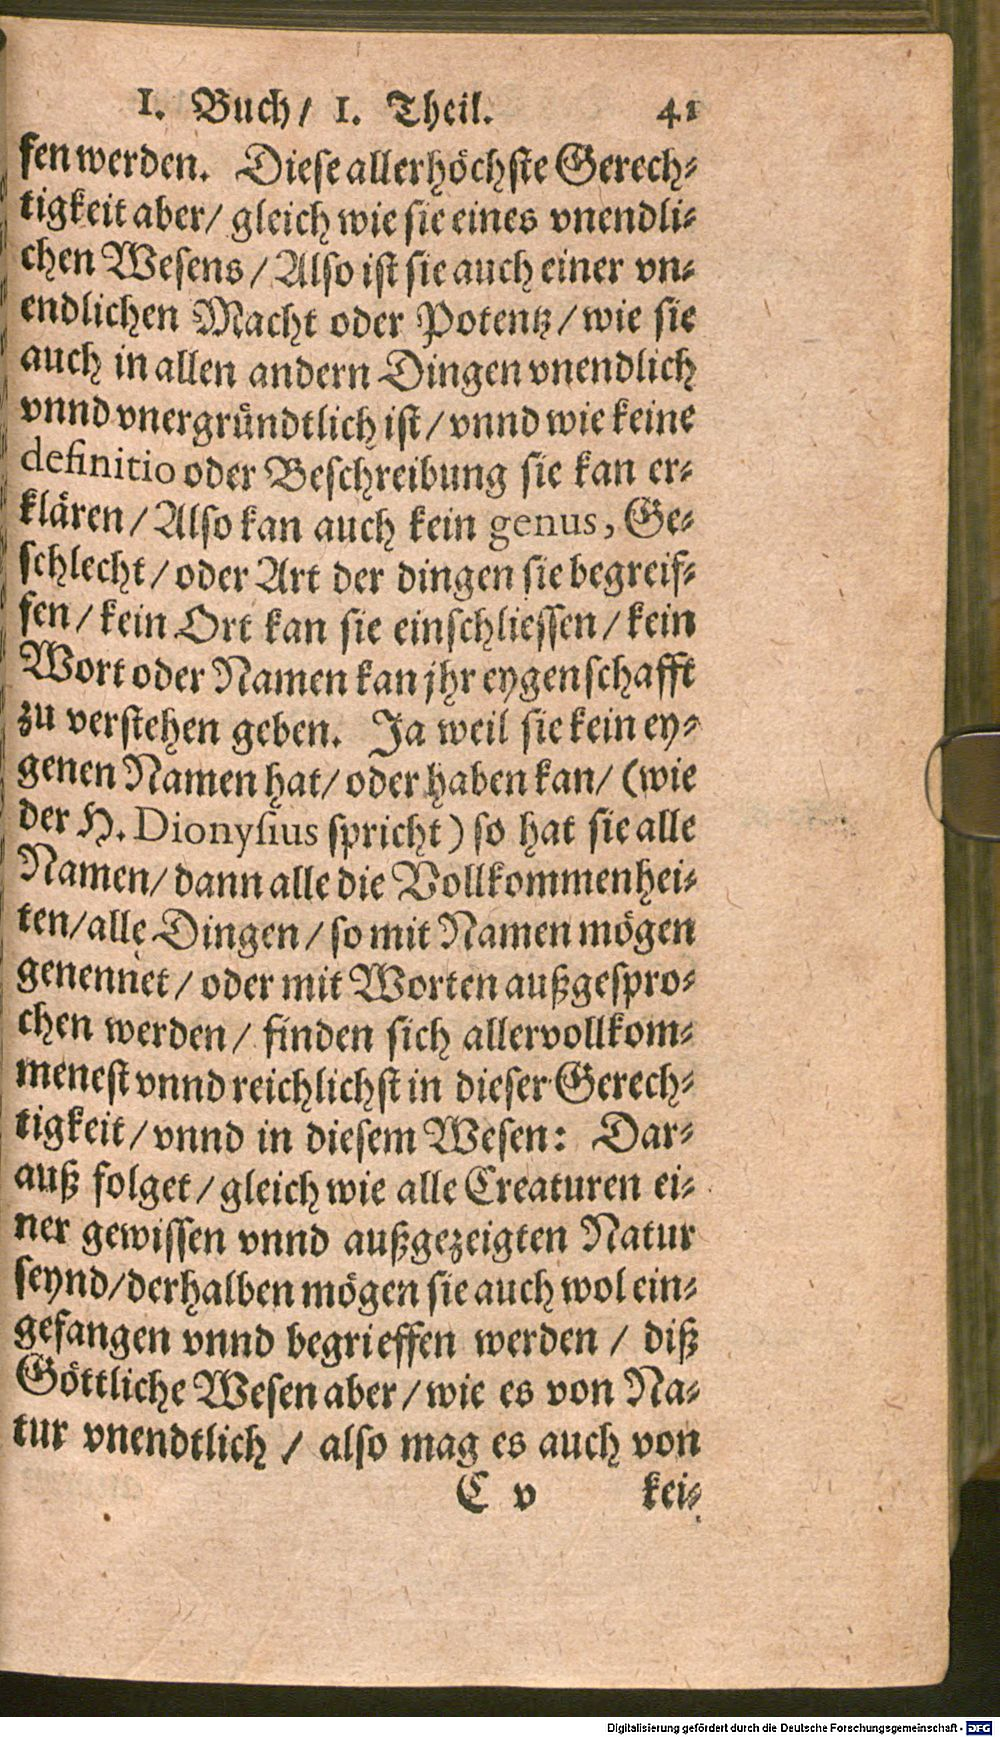 1. Buch/ 1. Theil. 41
fen werden. Diese allerhöchste Gerech-
tigkeit aber/ gleich wie sie eines vnendli-
chen Wesens/ Also ist sie auch einer vn-
endlichen Macht oder Potentz/ wie sie
auch in allen andern Dingen vnendlich
vnnd vnergründtlich ist/ vnnd wie keine
definitio oder Beschreibung sie kan er-
klären/ Also kan auch kein genus, Ge-
schlecht/ oder Art der dingen sie begreif-
fen/ kein Ort kan sie einschliessen/ kein
Wort oder Namen kan jhr eygenschafft
zu verstehen geben. Ja weil sie kein ey-
genen Namen hat/ oder haben kan/ (wie
der H. Dionysius spricht) so hat sie alle
Namen/ dann alle die Vollkommenhei-
ten/ alle Dingen/ so mit Namen mögen
genennet/ oder mit Worten außgespro-
chen werden/ finden sich allervollkom-
menest vnnd reichlichst in dieser Gerech-
tigkeit/ vnnd in diesem Wesen: Dar-
auß folget/ gleich wie alle Creaturen ei-
ner gewissen vnnd außgezeigten Natur
seynd/ derhalben mögen sie auch wol ein-
gefangen vnnd begrieffen werden/ diß
Göttliche Wesen aber/ wie es von Na-
tur vnendtlich/ also mag es auch von
C v kei-
Digitalisierung gefördert durch die Deutsche Forschungsgemeinschaft - DFG